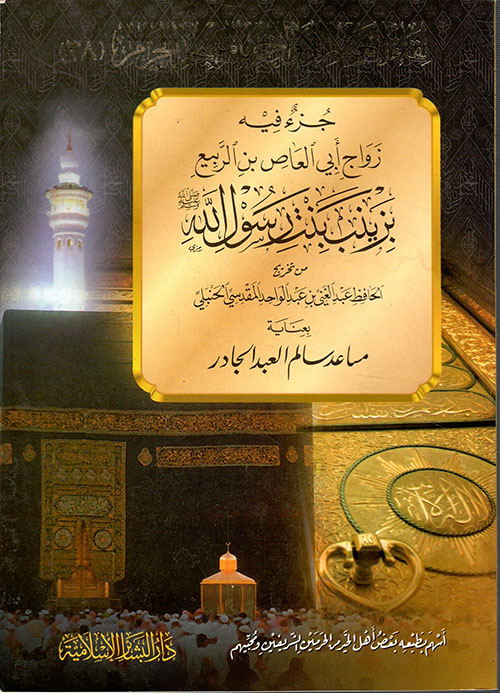 لقاء العشر الأواخر بالمسجد الحرام (٣٨)
جزء فيه
زواج أبي العاص بن الربيع
بزينب بنت رسول الله ﷺ
من تخريج
الحافظ عبد الغني بن عبد الواحد المقدسي الحنبلي
بعناية
مساعد سالم العبد الجادر
أسهم بطبعه بعض أهل الخير من الحرمين الشريفين ومحبيهم
دار البشائر الإسلامية